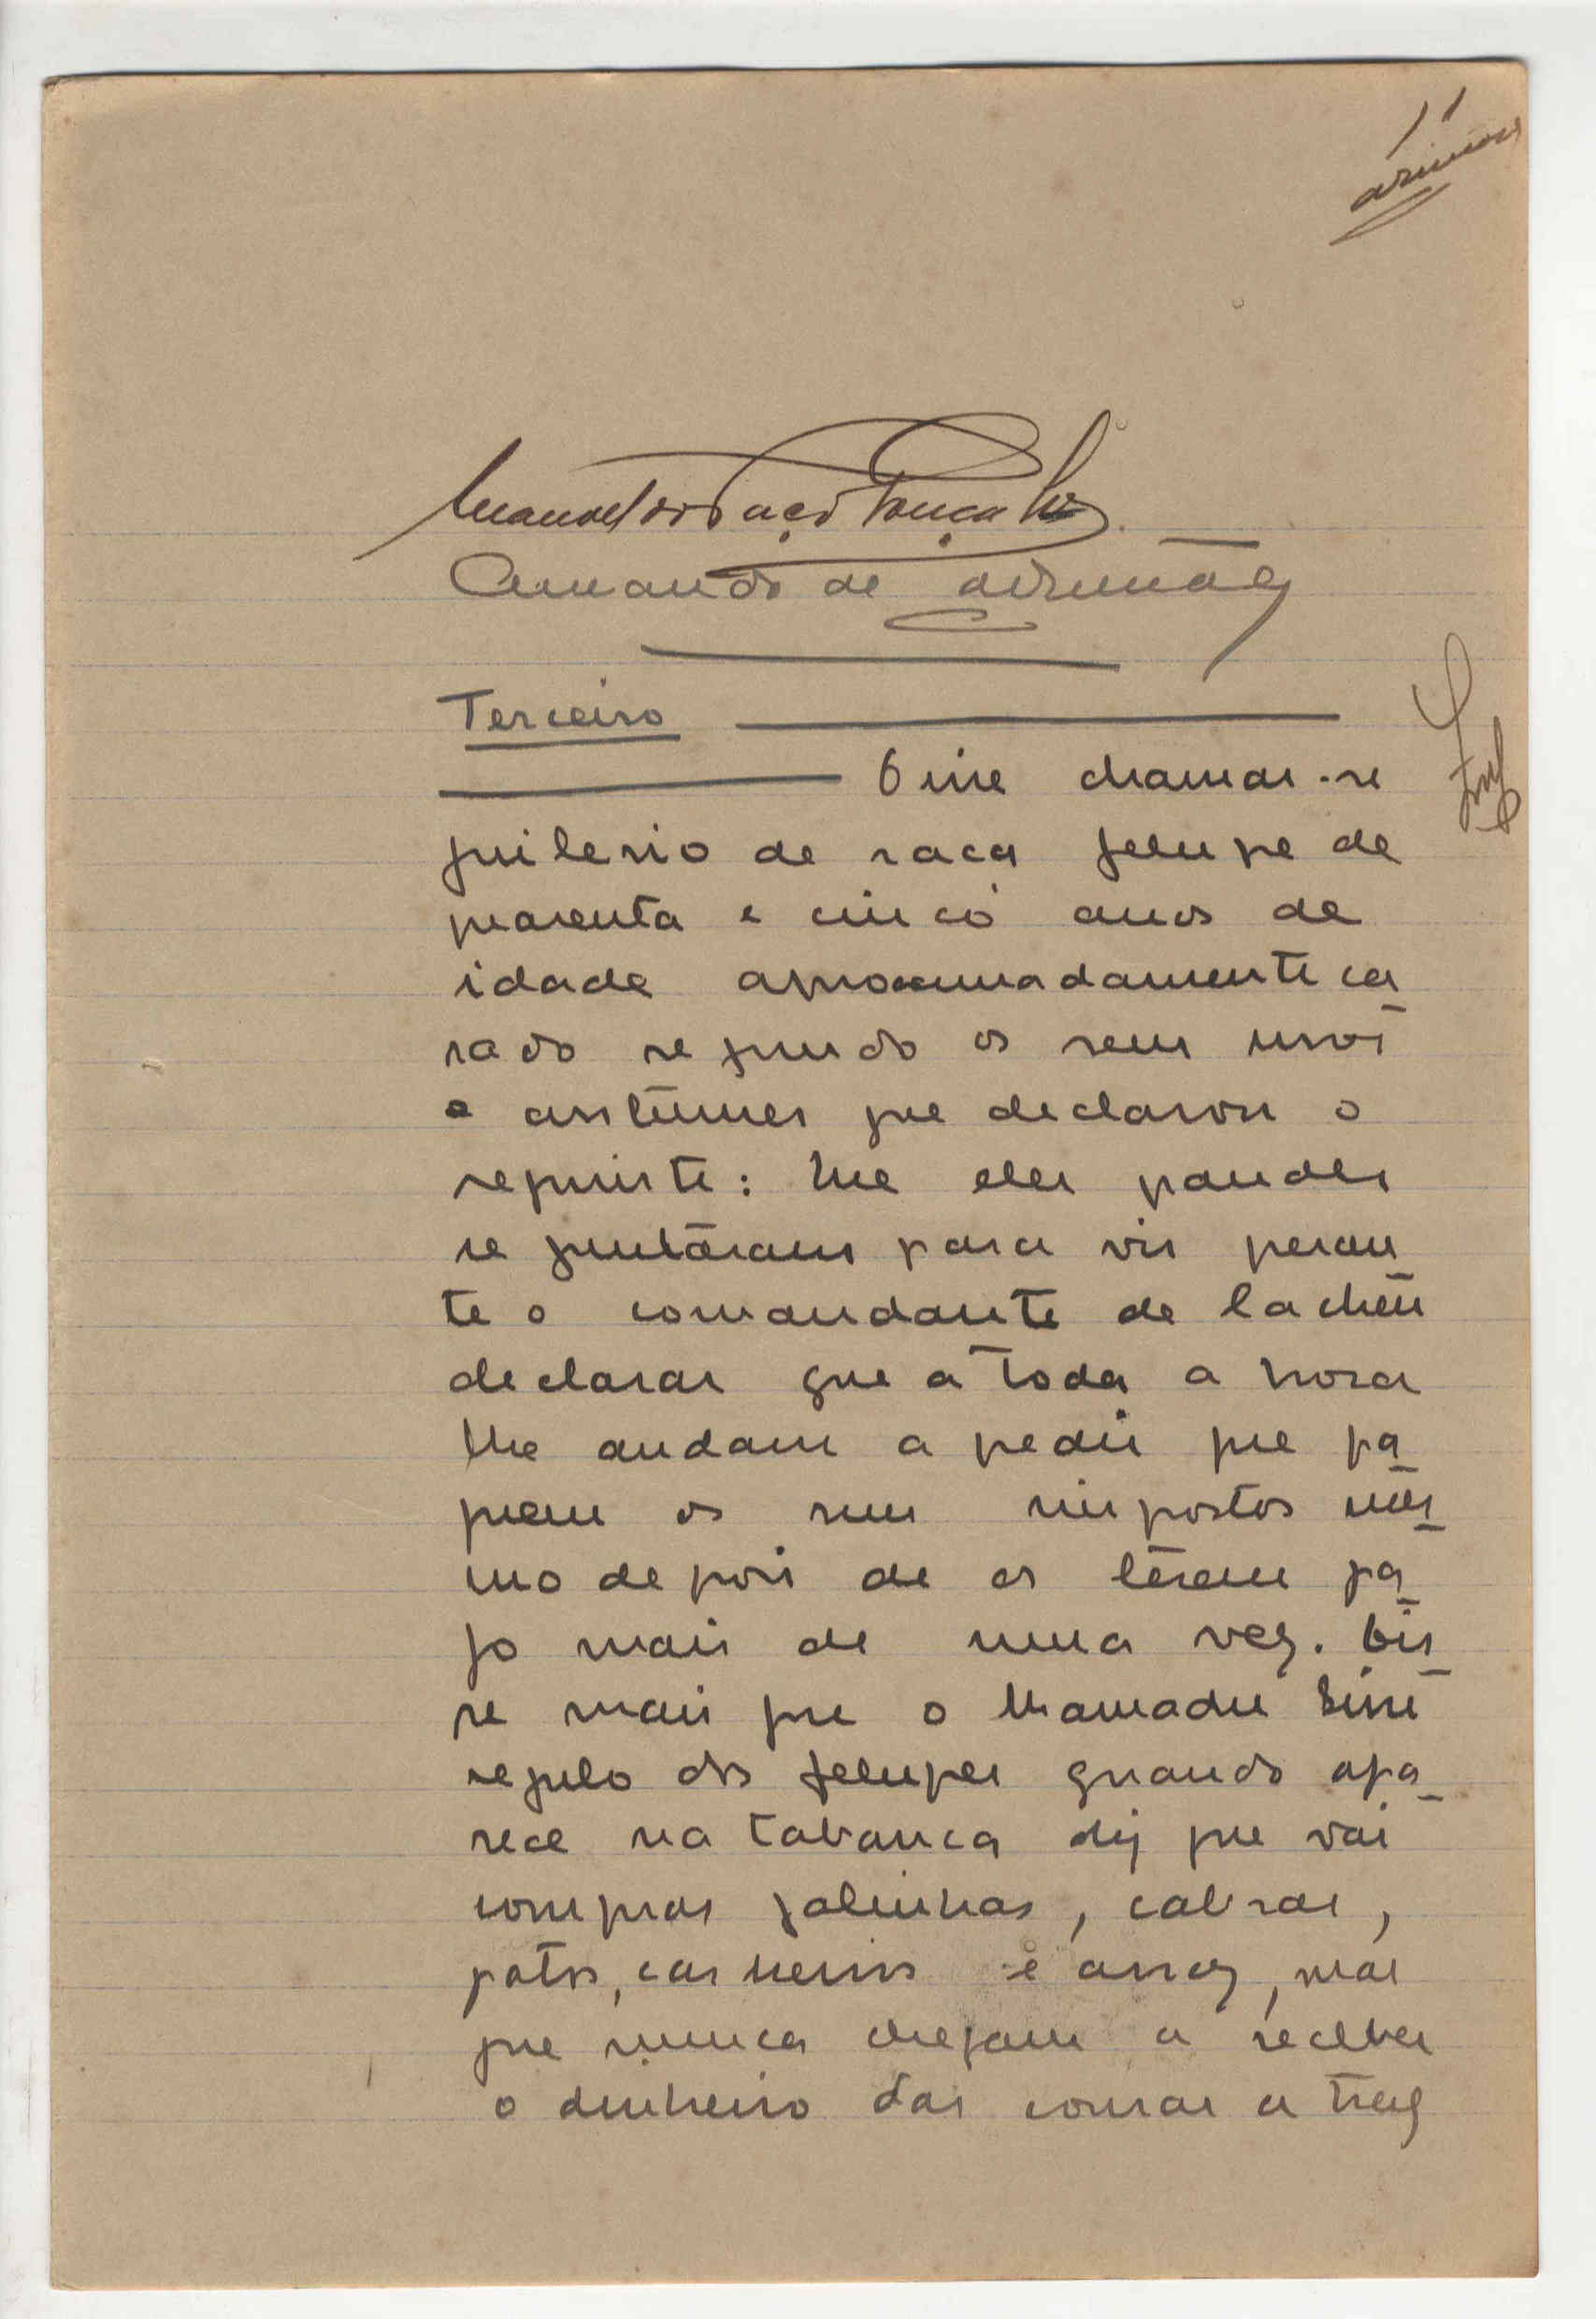 11
Manuel do Paço Gonçalves
Armando de
Terceiro
Disse chamar-se
de raca felupe de
quarenta e cinco anos de
idade aproximadamente ca
sado segundo os seus usos
e custumes que declarou o
seguinte: Que eles
se juntáram para vir peran
te o comandante de Cacheu
declarar que a toda a hora
lhe andam a pedir que pa
guem os seus impostos mês
mo depois de os têrem pa
go mais de uma vez. Dis
se mais que o Mamadu Sissé
regulo dos felupes quando apa
rece na tabanca diz que vai
comprar galinhas, cabras,
patos, carneiros e arroz, mas
que nunca chegam a receber
o dinheiro das cousas a traz